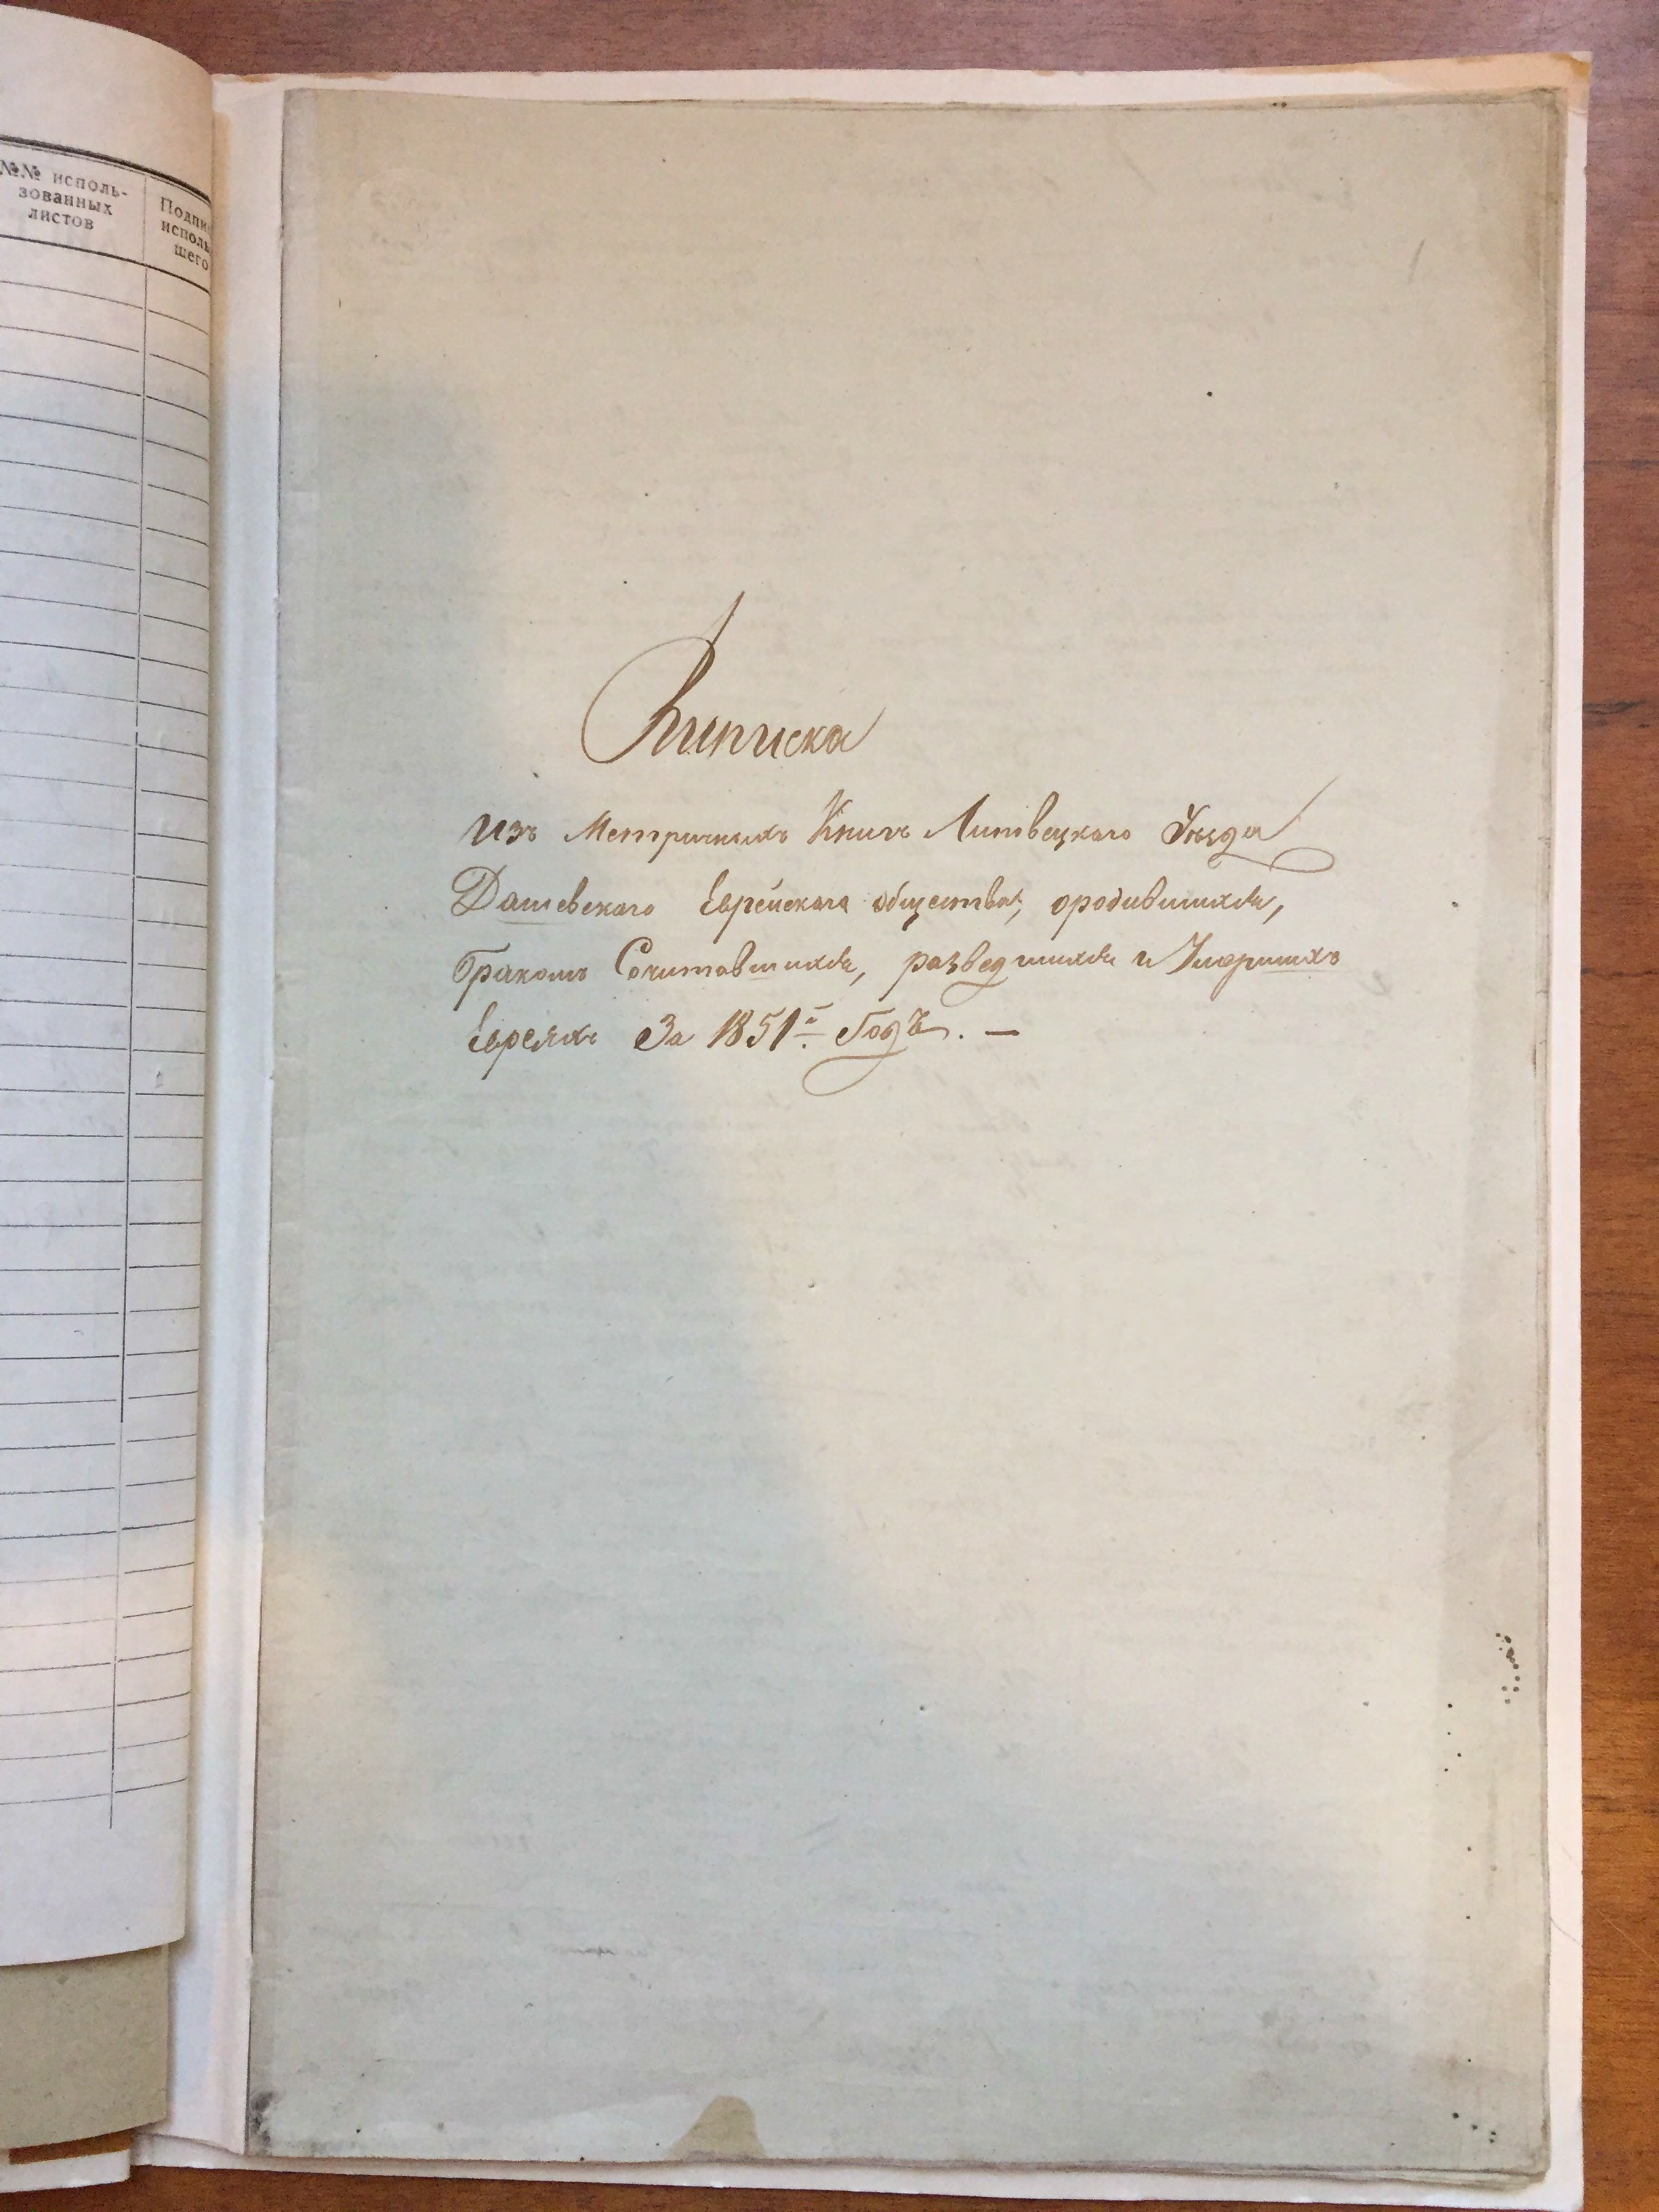 №№ исполь-
зованных
листов
Подпи
исполь
шего
Выписка
Изъ Метричныхъ Книгъ Липовецкаго Уѣзда
Дашевскаго Еврейскаго общества, ородившихся,
бракомъ Сочитавшихся, разведшихся и Умершихъ
Евреяхъ За 1851й Годъ. —